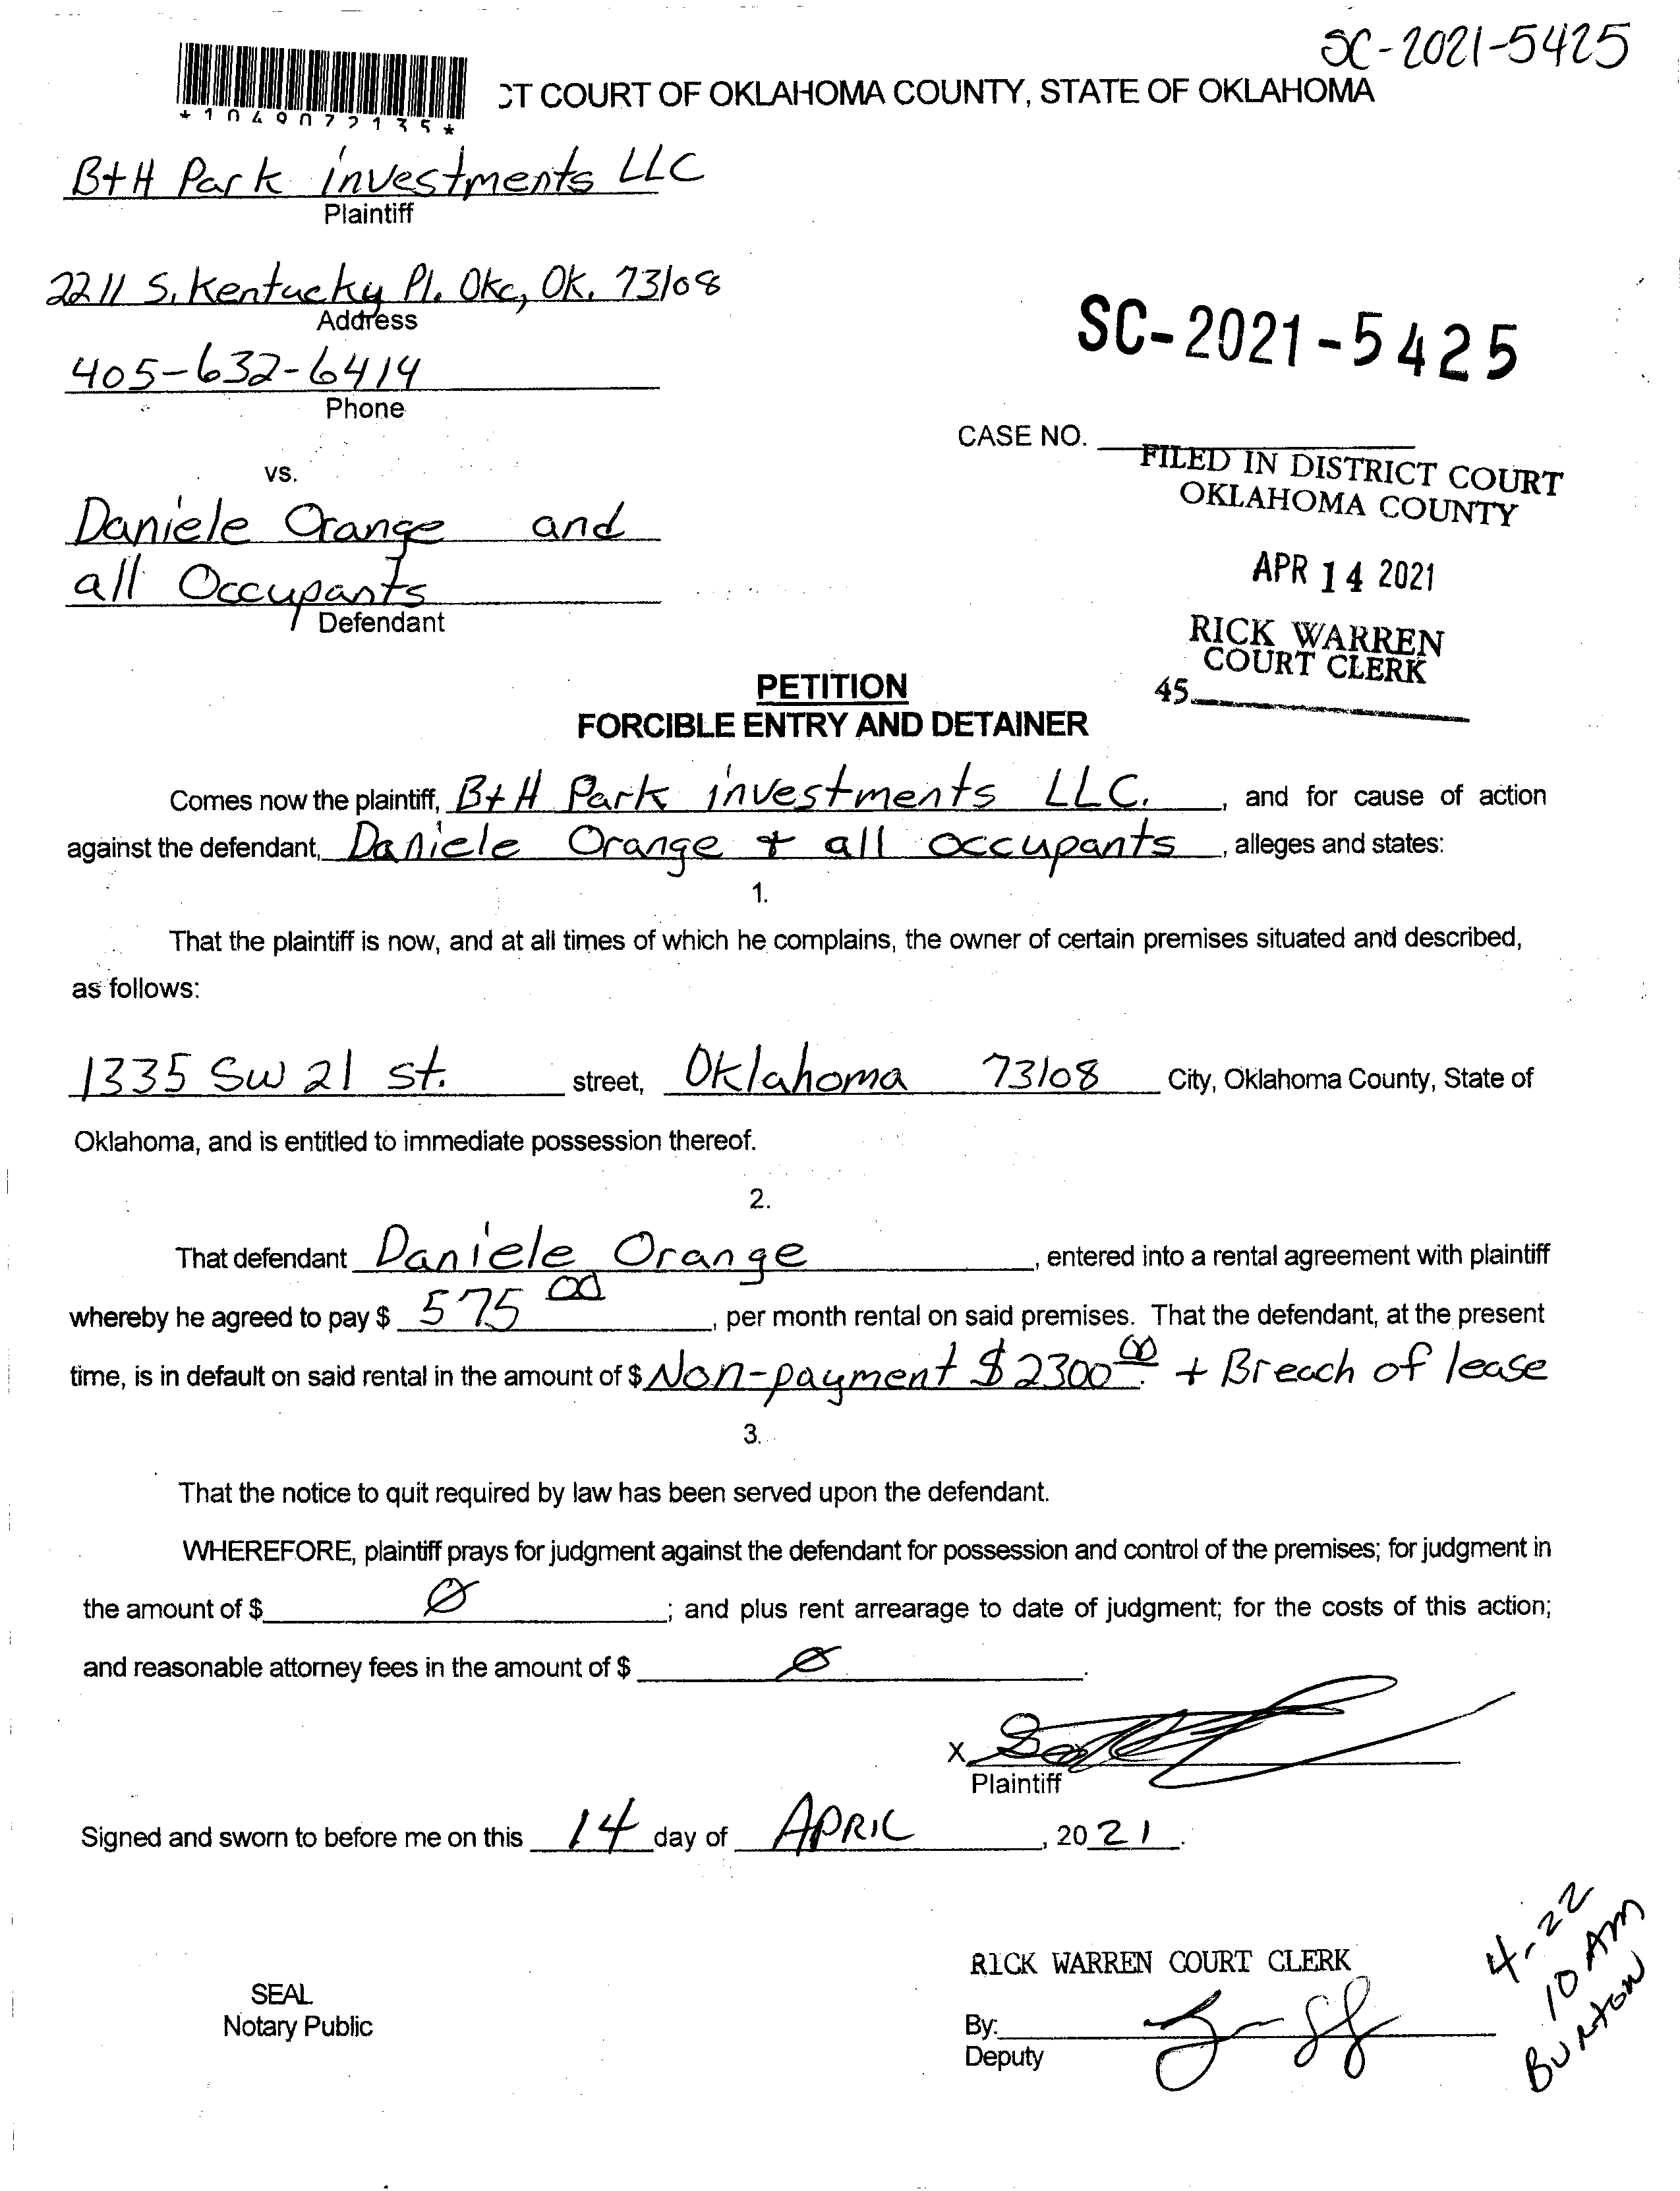 SC-2021-5425
CT COURT OF OKLAHOMA COUNTY, STATE OF OKLAHOMA
*1049072135*
B+H Park investments LLC
Plaintiff
2211 S. Kentucky Pl. Okc, OK. 73108
Address
SC-2021-5425
405-632-6414
Phone
CASE NO.
FILED IN DISTRICT COURT
OKLAHOMA COUNTY
vs.
Daniele Orange and
all Occupants
Defendant
APR 14 2021
RICK WARREN
COURT CLERK
45
PETITION
FORCIBLE ENTRY AND DETAINER
Comes now the plaintiff, B+H Park investments LLC. , and for cause of action
against the defendant, Daniele Orange + all occupants , alleges and states:
1.
That the plaintiff is now, and at all times of which he complains, the owner of certain premises situated and described,
as follows:
1335 SW 21 st. street, Oklahoma 73108 City, Oklahoma County, State of
Oklahoma, and is entitled to immediate possession thereof.
2.
That defendant Daniele Orange , entered into a rental agreement with plaintiff
whereby he agreed to pay $ 575 00 , per month rental on said premises. That the defendant, at the present
time, is in default on said rental in the amount of $ Non-payment $2300 00. + Breach of lease
3.
That the notice to quit required by law has been served upon the defendant.
WHEREFORE, plaintiff prays for judgment against the defendant for possession and control of the premises; for judgment in
the amount of $ Ø ; and plus rent arrearage to date of judgment; for the costs of this action;
and reasonable attorney fees in the amount of $ Ø .
X
Plaintiff
Signed and sworn to before me on this 14 day of APRIL , 20 21 .
RICK WARREN COURT CLERK
SEAL
Notary Public
By:
Deputy
4-22
10 AM
BURTON